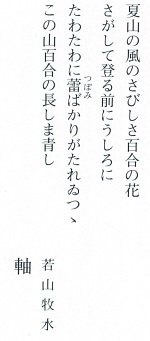 夏山の風のさびしさ百合の花
さがして登る前にうしろに
たわたわに蕾ばかりがたれゐつゝ
つぼみ
この山百合の長しま青し
若山牧水
軸